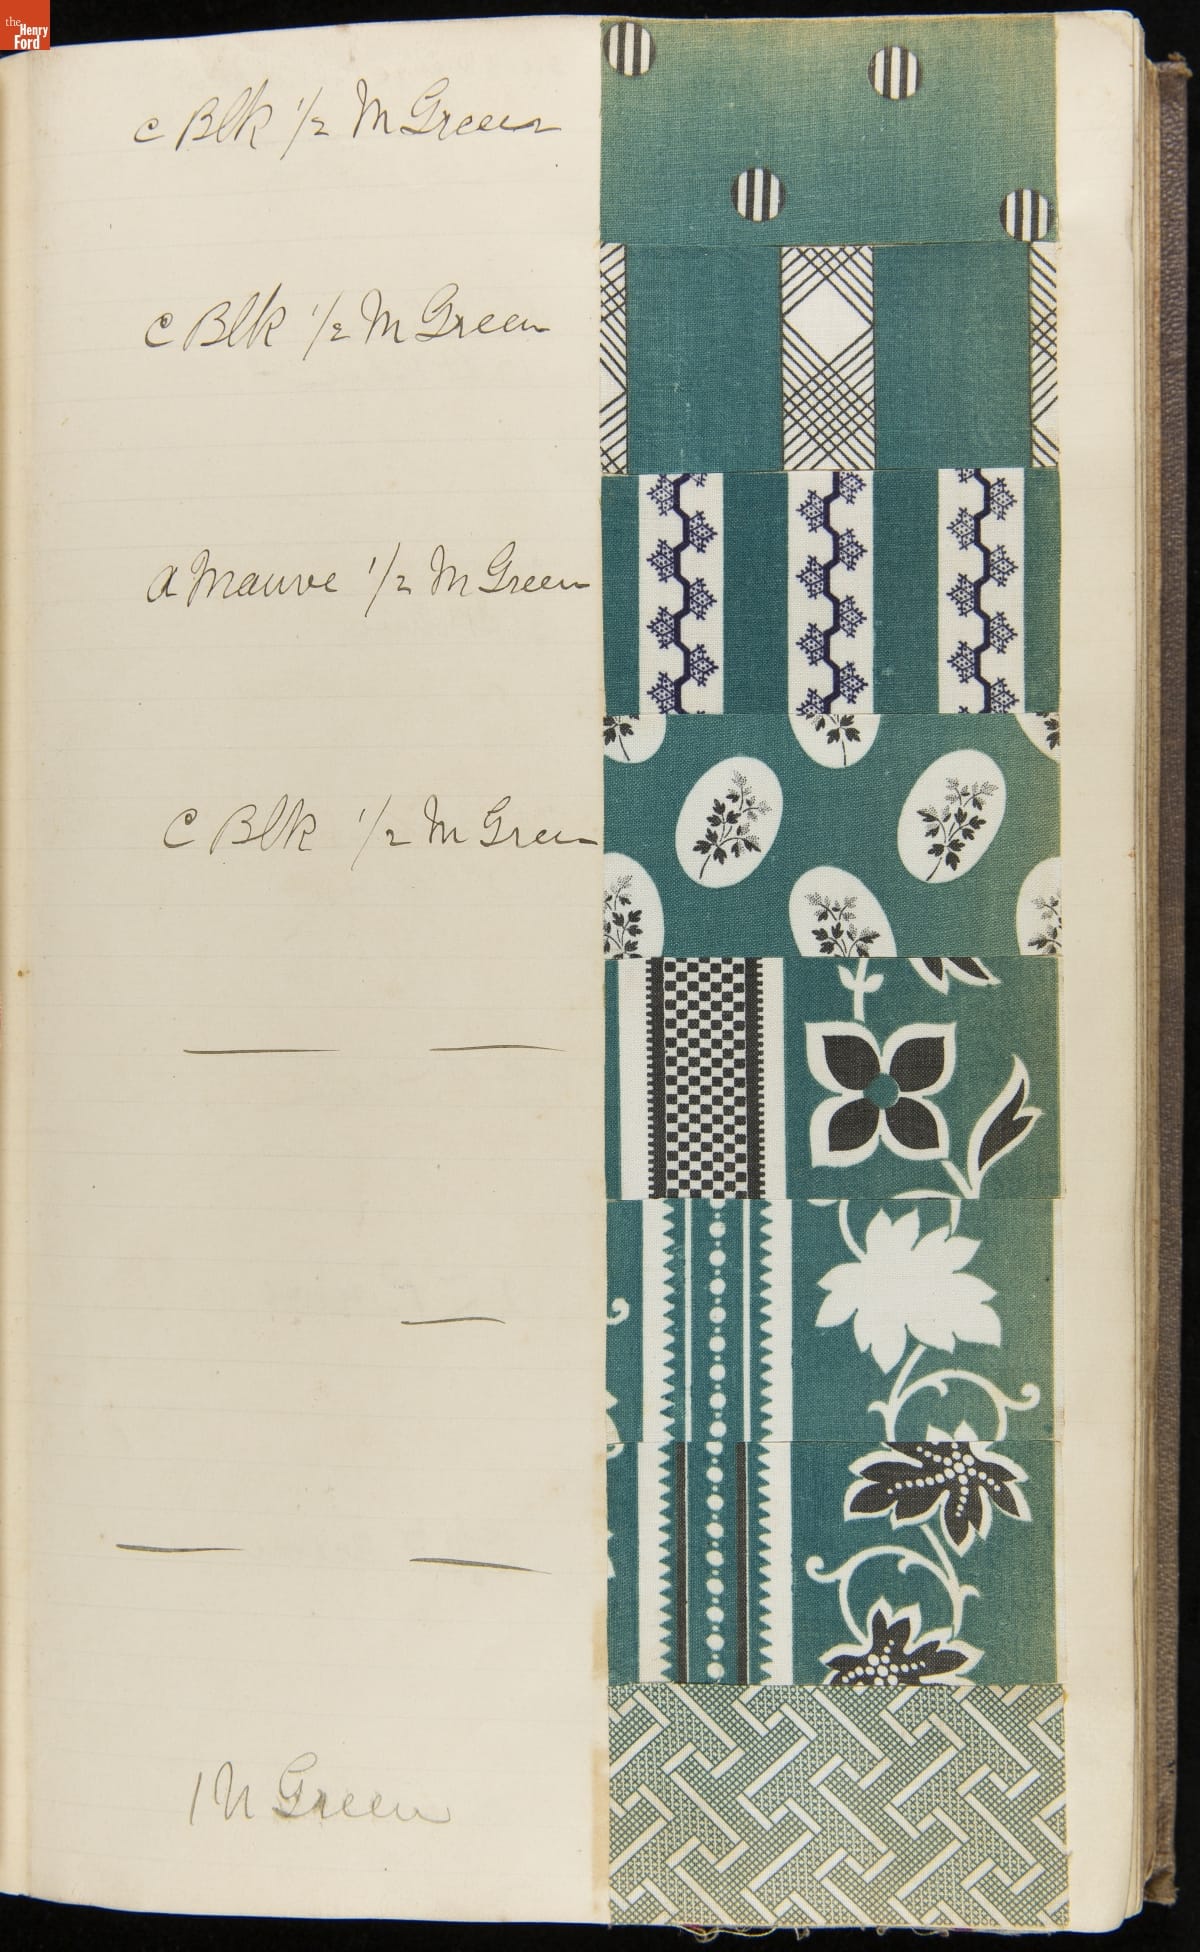 the
Henry
Ford
c Blk 1/2 M Green
c Blk 1/2 M Green
a Mauve 1/2 M Green
C Blk 1/2 M Green
— —
—
— —
1 N Green